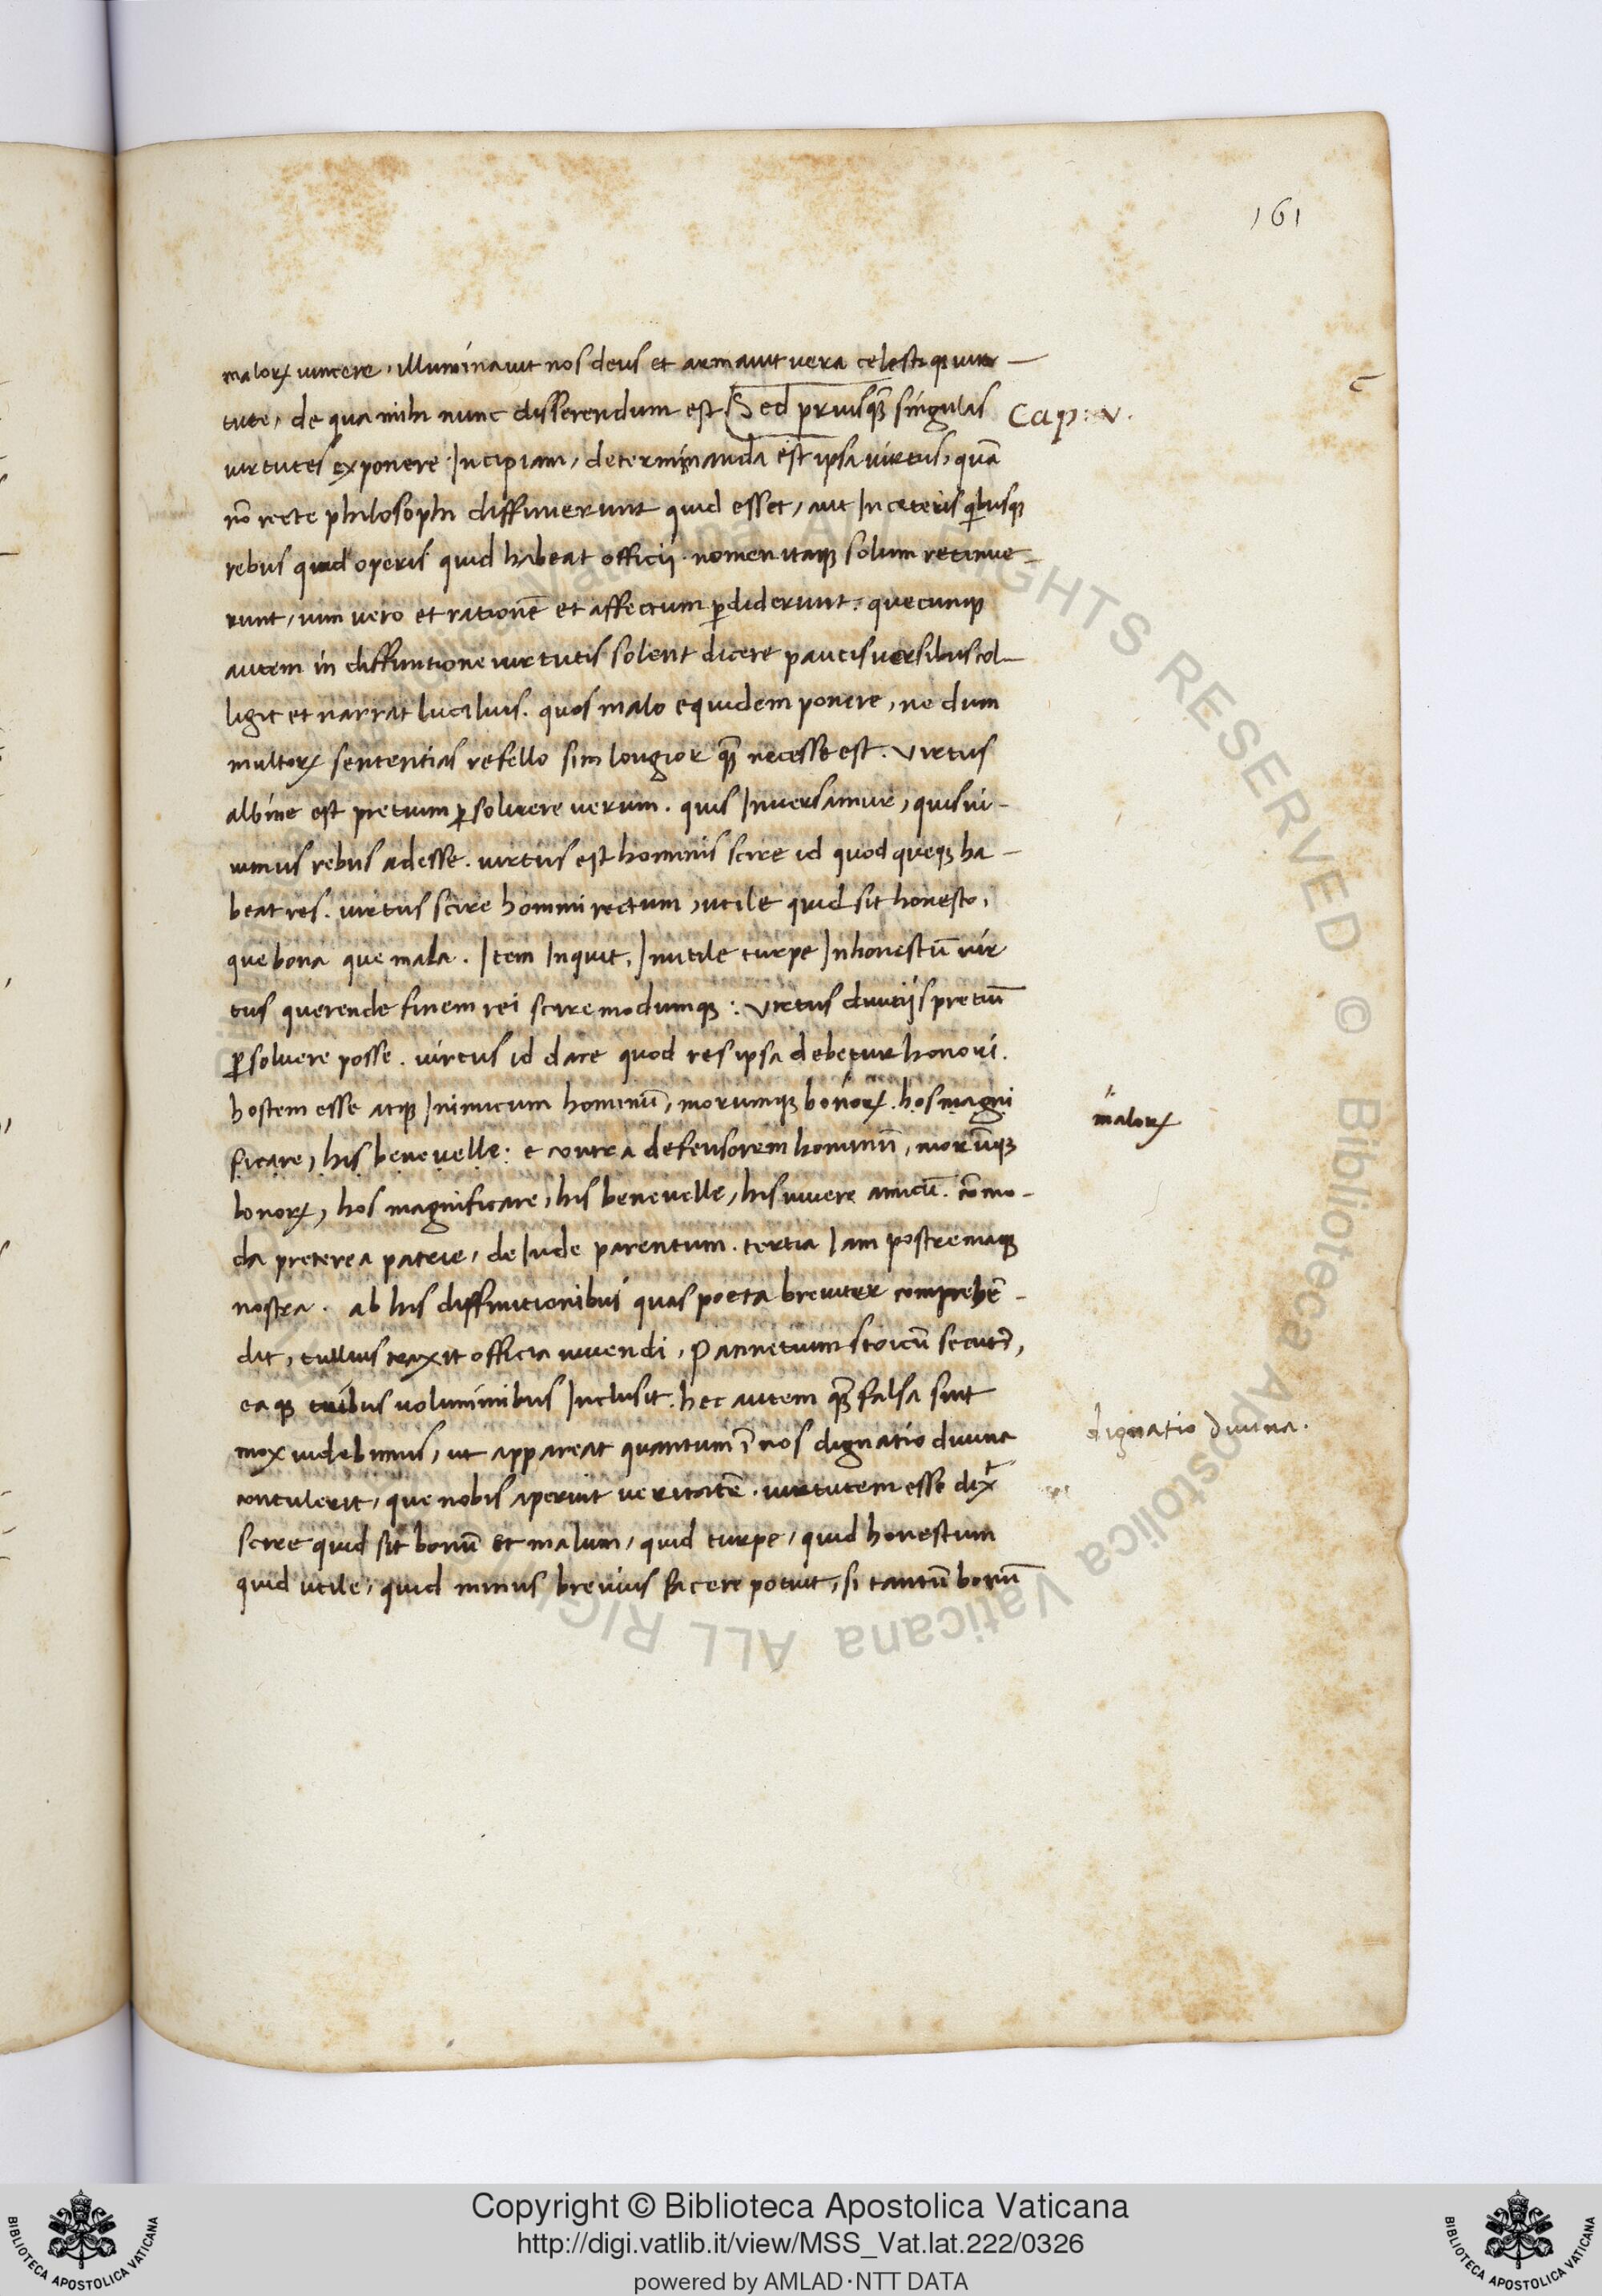 161
maloꝝ uincere, illuminauit nos deus et armauit uera celestiqꝫ uir—
tute, de qua mihi nunc disserendum est. Sed priusqꝫ̃ singulas Cap: v.
uirtutes exponere Incipiam, determinanda est ipsa uirtus, quã
nõ recte philosophi diffinierunt quid esset, aut In ceteris qͥbusqꝫ
rebus quid operis quid habeat officij. nomen itaqꝫ solum retinue-
runt, uim uero et rationẽ et affectum ꝑdiderunt. quecunqꝫ
autem in diffinitione uirtutis solent dicere paucis uersibus col—
ligit et narrat lucilius. quos malo equidem ponere, ne dum
multoꝝ sententias refello sim longior qꝫ̃ necesse est. Virtus
albine est pretium ꝑsoluere uerum. quis Inuersamur, quis ui-
uimus rebus adesse. uirtus est hominis scire id quod queqꝫ ha—
beat res. uirtus scire homini rectum, utile quid sit honesto,
que bona que mala. Item Inquit, Inutile turpe Inhonestũ uir
tus querende finem rei scire modumqꝫ: Virtus diuitijs pretiũ
ꝑsoluere posse. uirtus id dare quod res ipsa debetur honori.
hostem esse atqꝫ Inimicum hominũ, morumqꝫ bonoꝝ. hos magni
maloꝝ
ficare, his bene uelle: e contra defensorem hominũ, morũqꝫ
bonoꝝ, hos magnificare, his bene uelle, his uiuere amicũ. cõmo-
da preterea patrie, deInde parentum. tertia Iam postremaqꝫ
nostra. ab his diffinitionibus quas poeta breuiter comprehẽ-
dit, tullius traxit officia uiuendi, Pannetium stoicũ secutꝰ,
eaqꝫ tribus uoluminibus Inclusit. hec autem qꝫ̃ falsa sint
mox uidebimus, ut appareat quantum ĩ nos dignatio diuina
dignatio diuina.
contulerit, que nobis aperuit ueritatẽ. uirtutem esse dixͭ
scire quid sit bonũ et malum, quid turpe, quid honestum
quid utile, quid minus breuius facere potuit, si tantũ bonũ
Copyright © Biblioteca Apostolica Vaticana
http://digi.vatlib.it/view/MSS_Vat.lat.222/0326
powered by AMLAD·NTT DATA
BIBLIOTECA APOSTOLICA VATICANA
BIBLIOTECA APOSTOLICA VATICANA